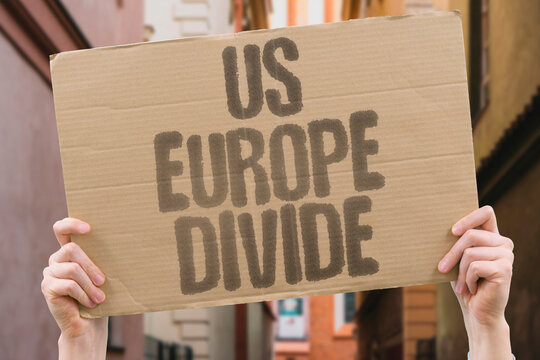 US
EUROPE
DIVIDE